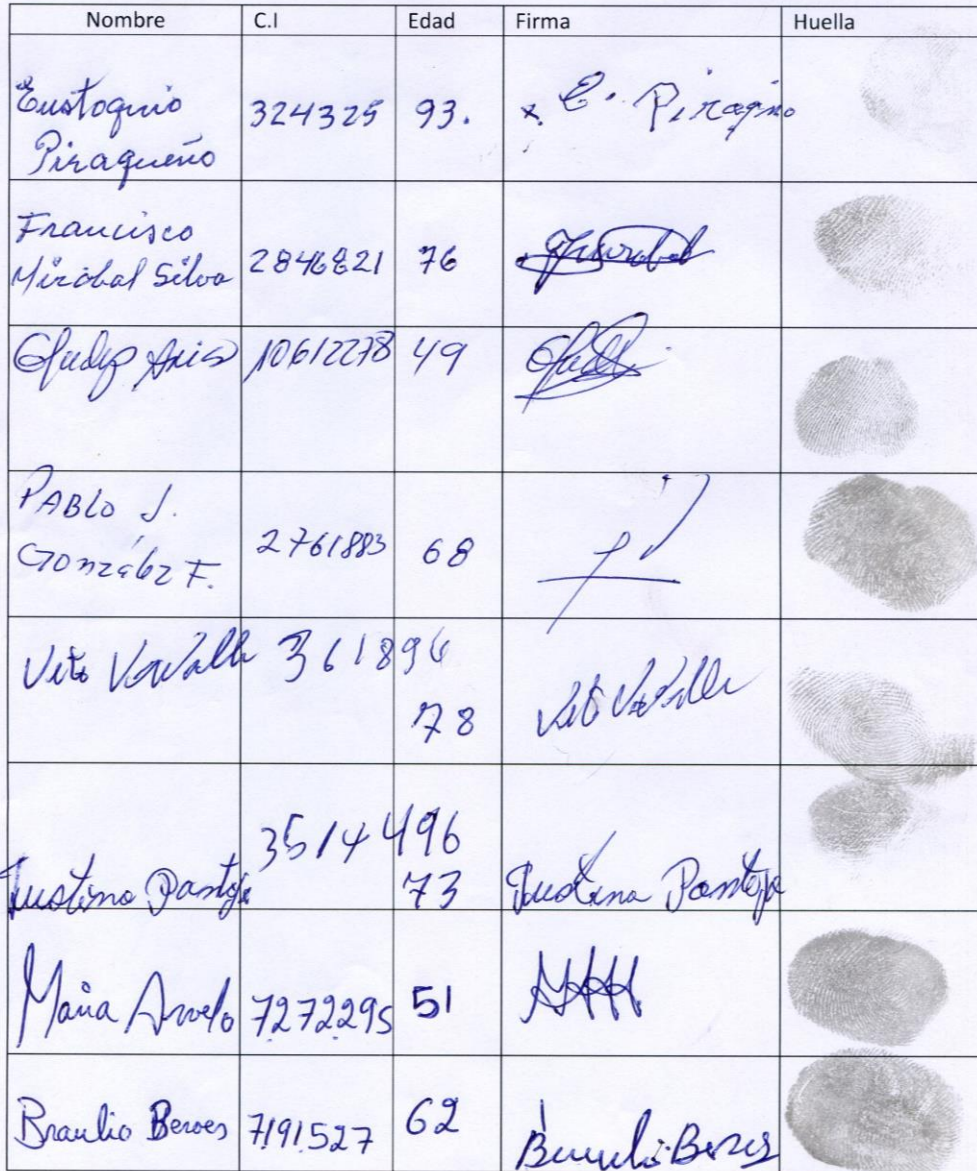 Nombre C.I Edad Firma Huella
Eustoquio
Piraqueño 324325 93. x E. Piraqno
Francisco
Mirabal Silva 2846821 76
Gladys 10612278 49
PABLO J.
González F. 2761883 68
Vito 361896
78 Vito
3514496
Justina Pantoja 73 Justina Pantoja
Maria Arvelo 7272295 51
Braulio Beroes 7191527 62